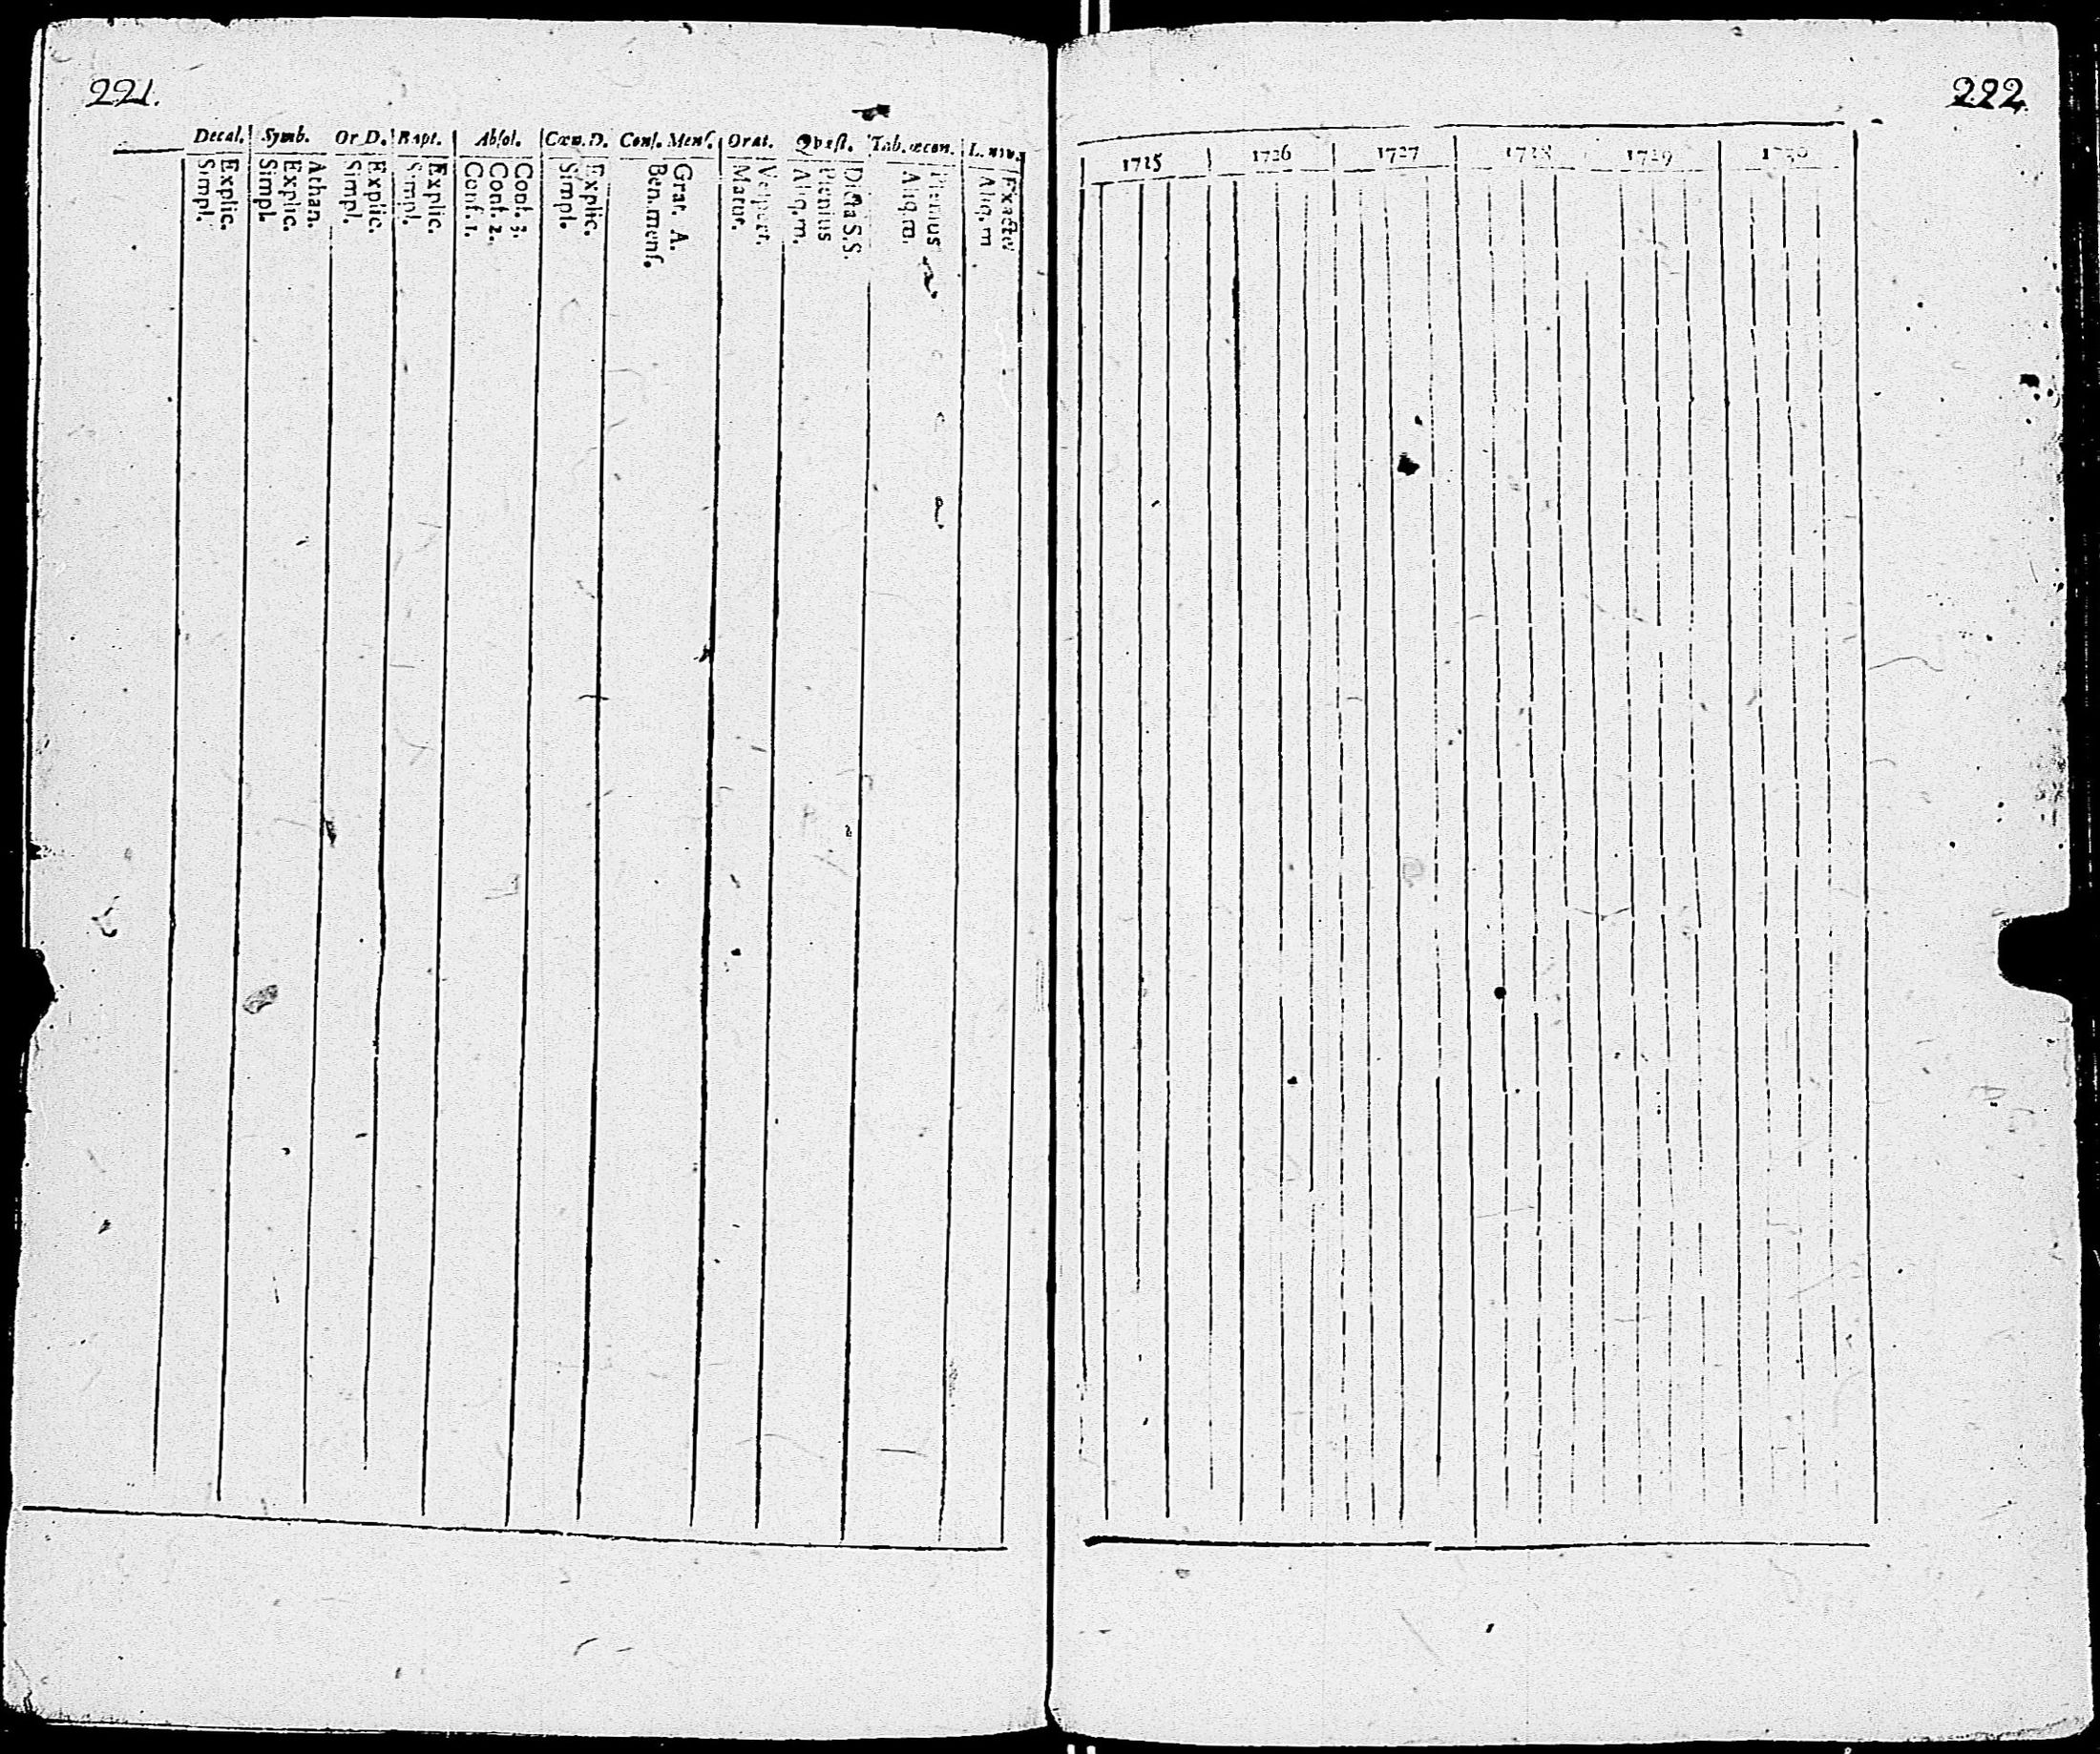 221.
222.
Decal. Symb. Or D. Bapt. Absol. Cœn. D. Conf. Mens. Orat. Qvæst. Tab. œcon. L. niv.
Explic.
Simpl.
Athan.
Explic.
Simpl.
Explic.
Simpl.
Explic.
Simpl.
Conf. 3.
Conf. 2.
Conf. 1.
Explic.
Simpl.
Grat. A.
Ben. mens.
Vesper.
Matut.
Dicta S.S.
Plenius
Aliq. m.
Plenius
Aliq. m.
Exacte
Aliq. m
1725 1726 1727 1728 1729 1730